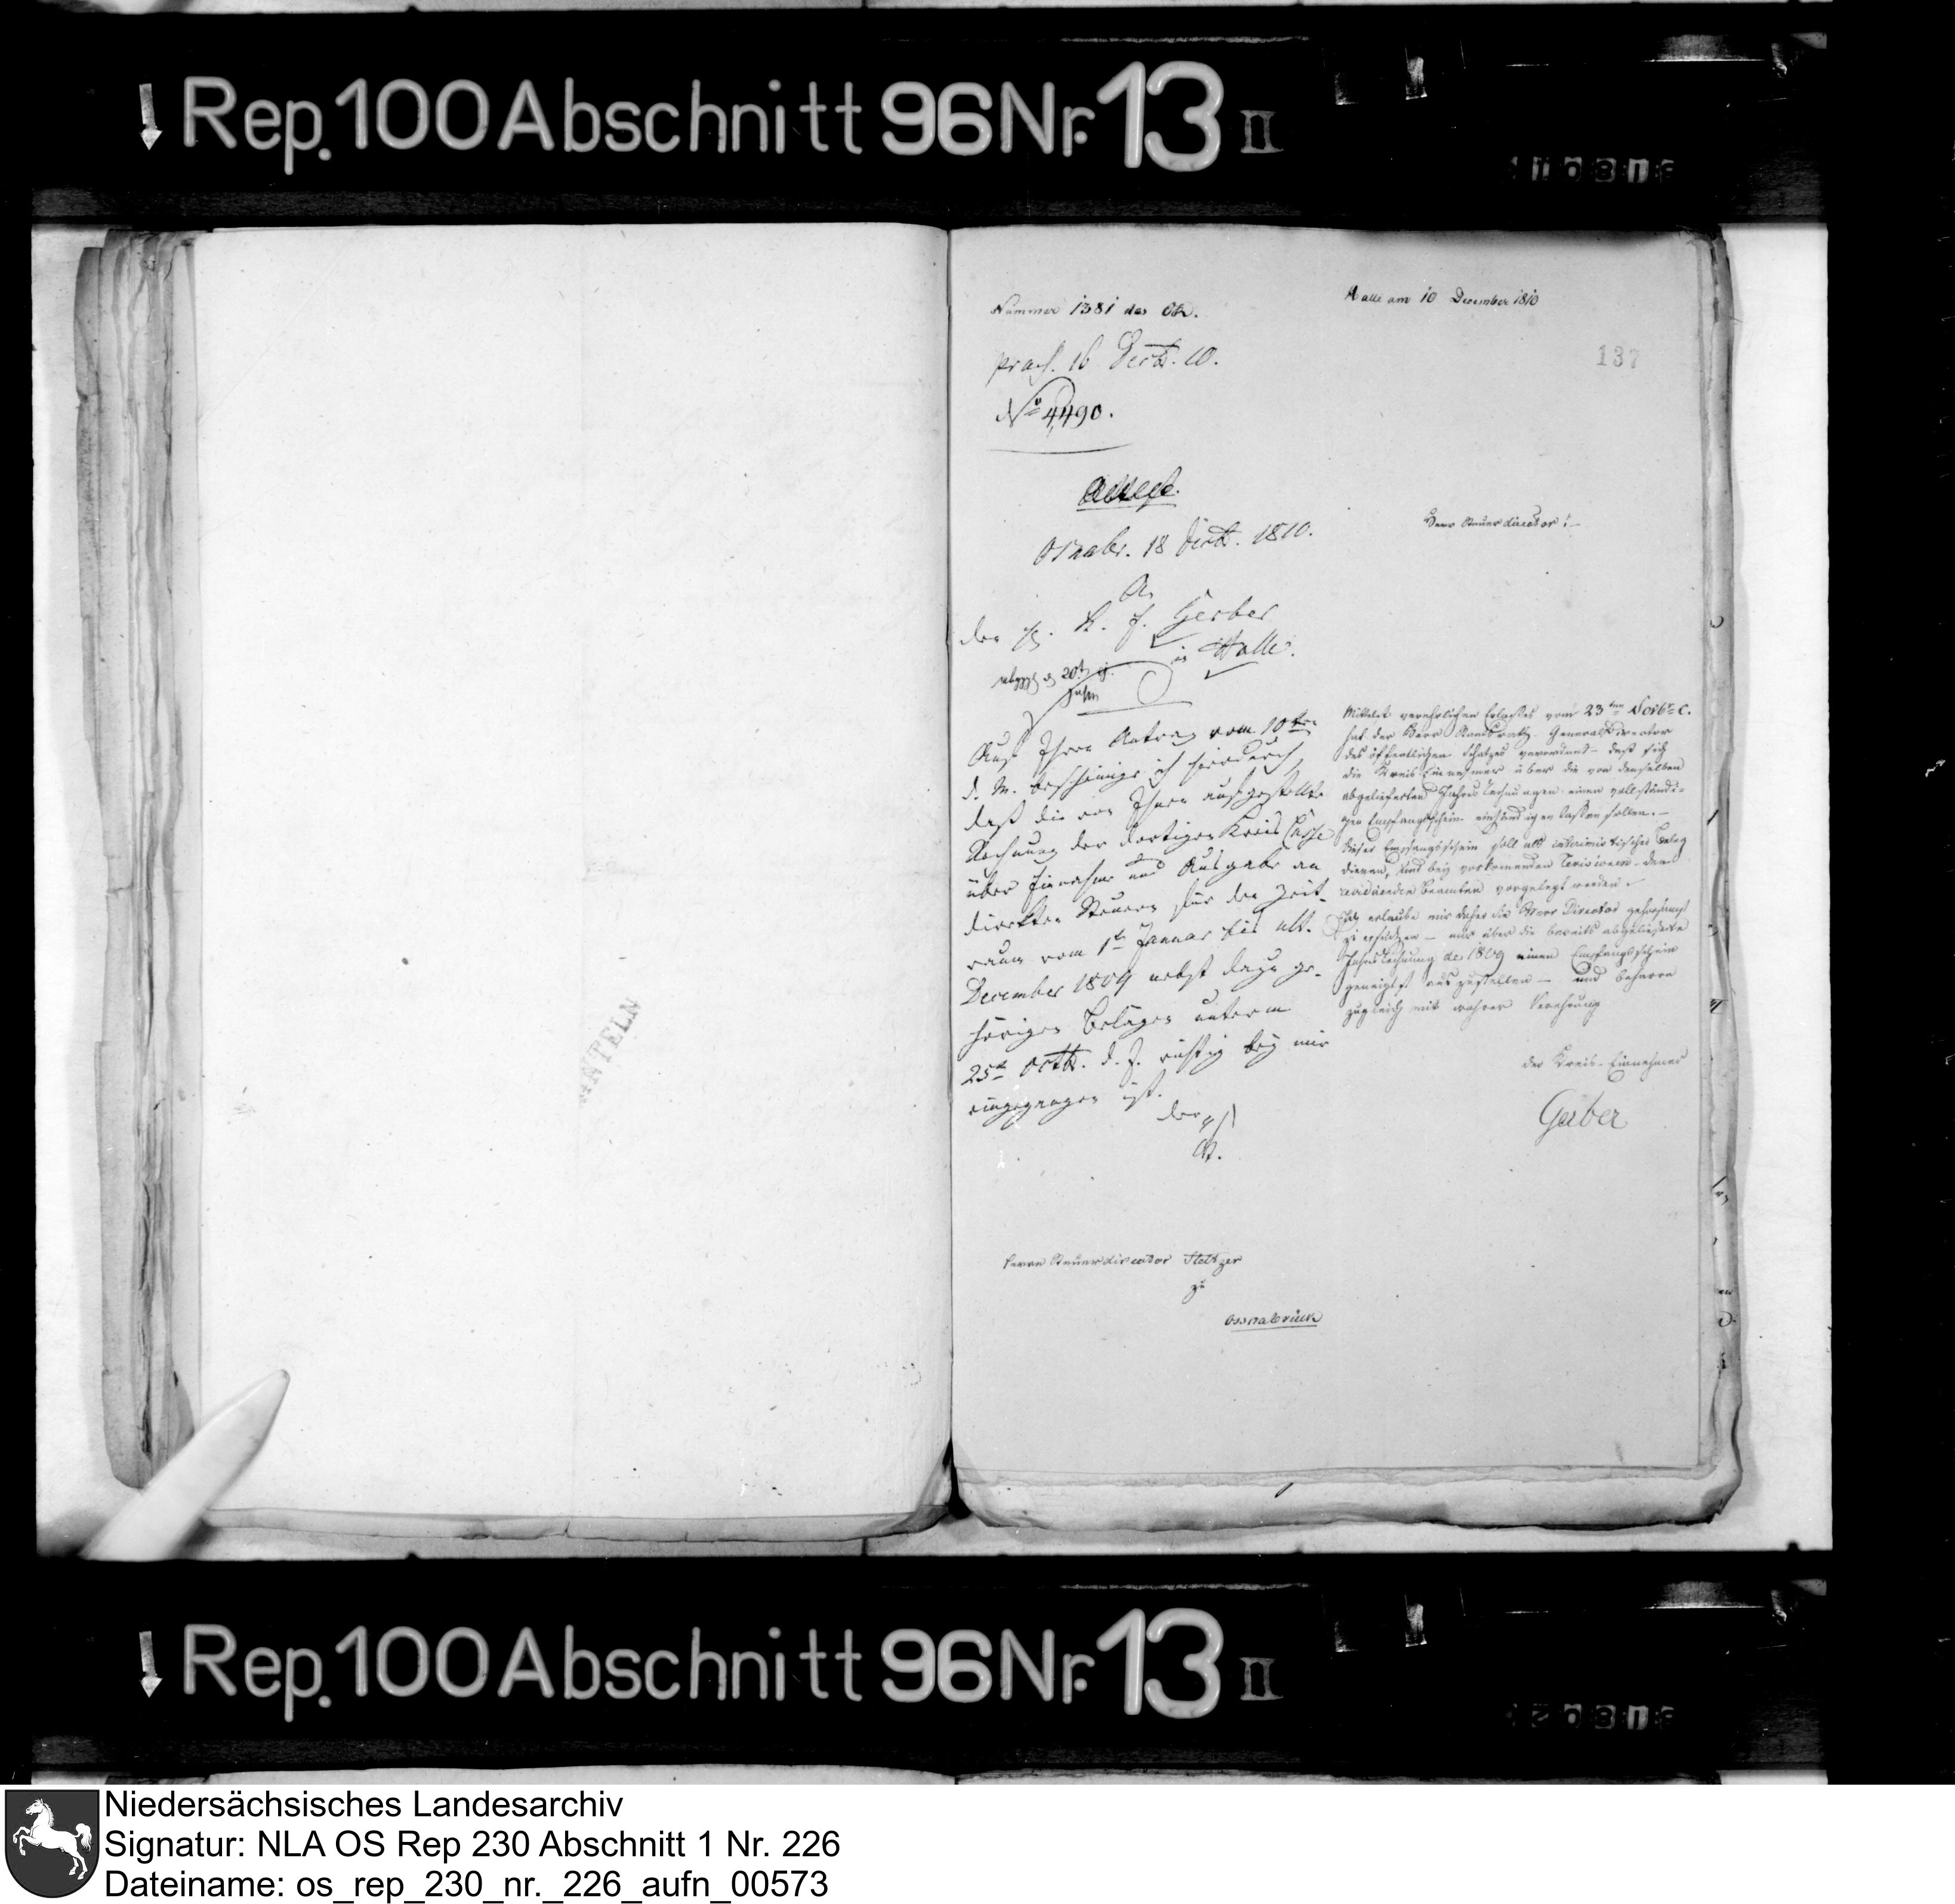 Rep. 100 Abschnitt 96 Nr. 13 II
Nummer 1381 des
Halle am 10 December 1810
praes. 16 Decbr. 10.
137
No 4490.
Osnabr. 18 Decbr. 1810.
Herr Steuerdirector!
An
den K. E. Gerber
in Halle.
Auf Ihren Antrag vom 10ten
d. M. bescheinige ich hierdurch,
daß die von Ihnen aufgestellte
Rechnung der dortigen Kreis Casse
über Einnahme und Ausgabe an
direkten Steuern für den Zeit-
raum vom 1ten Januar bis ult.
December 1809 nebst dazu ge-
hörigen Belägen unterm
25ten Octbr. d. J. richtig bey mir
eingegangen ist.
Der
St.
Mittelst verehrlichen Erlaßes vom 23ten Novbr. c.
hat der Herr Staatsrath General Director
des öffentlichen Schatzes verordnet – daß sich
die Kreis-Einnehmer über die von denselben
abgelieferten Jahres Rechnungen einen vollständi-
gen Empfangschein einhändigen lassen sollen. –
Dieser Empfangschein soll als interimistischer Beleg
dienen, und bey vorkommenden Revisionen den
revidirenden Beamten vorgelegt werden.
Ich erlaube mir daher die Herr Director gehorsamst
zu ersuchen – mir über die bereits abgelieferte
Jahres Rechnung de 1809 einen Empfangschein
geneigtest auszustellen – und beharre
zugleich mit wahrer Verehrung
der Kreis-Einnehmer
Gerber
Herrn Steuerdirector Steltzer
zu
Ossnabrück
Rep. 100 Abschnitt 96 Nr. 13 II
Niedersächsisches Landesarchiv
Signatur: NLA OS Rep 230 Abschnitt 1 Nr. 226
Dateiname: os_rep_230_nr._226_aufn_00573